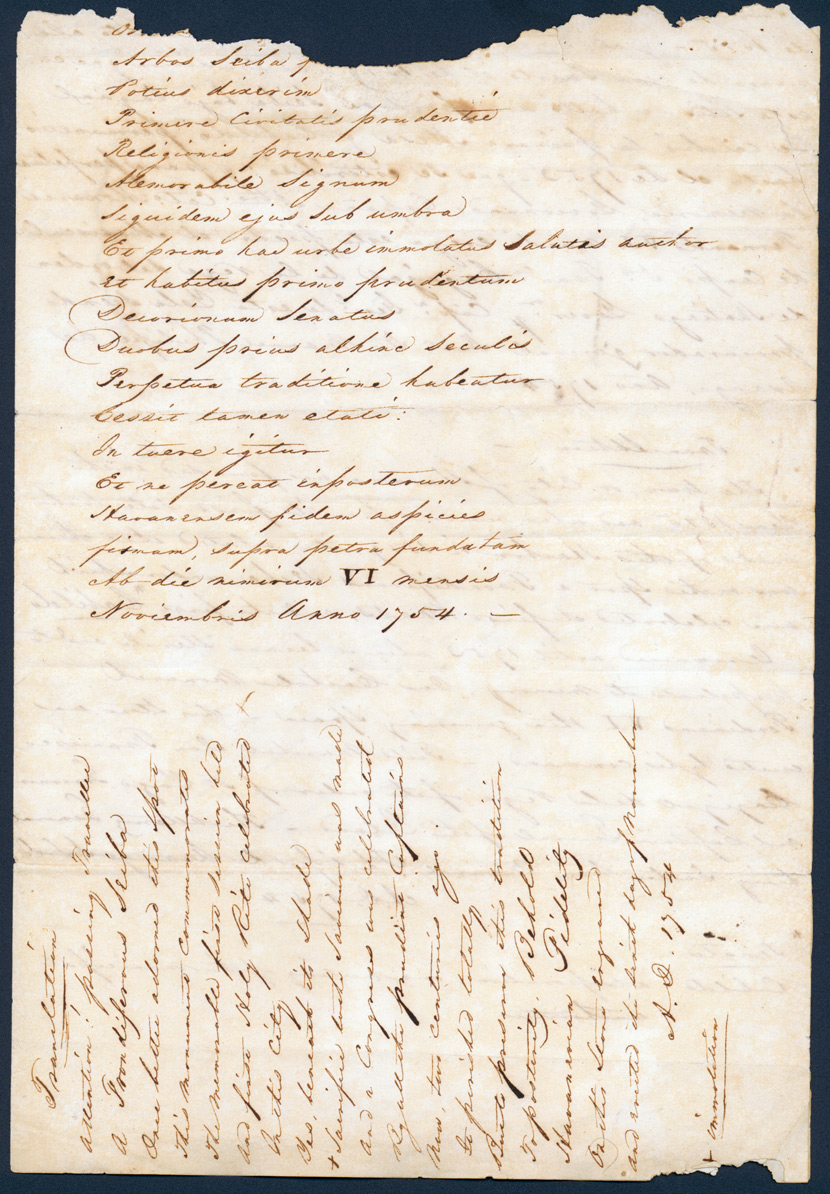 Arbos Seiba
Potius dixerim
Primere Civitatis prudentie
Religionis primere
Memorabile Signum
Siquidem ejus sub umbra
Et primo hac urbe immolatus Salutis author
et habitus primo prudentum
Decorionum Senatus
Duobus prius alhinc Seculis
Perpetua traditione habeatur
Cessit tamen etati:
In tuere igitur
Et ne pereat inposterum
Havanensem fidem aspicies
firmam, supra petra fundatam
Ab die nimirum VI mensis
Noviembris Anno 1754. —
Translation
Attention! passing Traveller
A Frondiferous Seiba
Once better adorned this Spot
This monument commemorates
The memorable first session held
And first Holy Rite celebrated +
In this City
Yes, beneath its Shade
+ Sacrifice to the Saviour was made
And a Congress was celebrated
By all the prudent Citizens
Now, two centuries ago.
to perished totally
But to preserve this tradition
To posterity, Behold
Havanerian Fidelity
On this Stone engraved
and united the sixth day of November
A. D. 1754
+ immolation